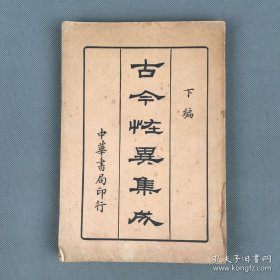 下編
古今怪異集成
中華書局印行
孔夫子旧书网